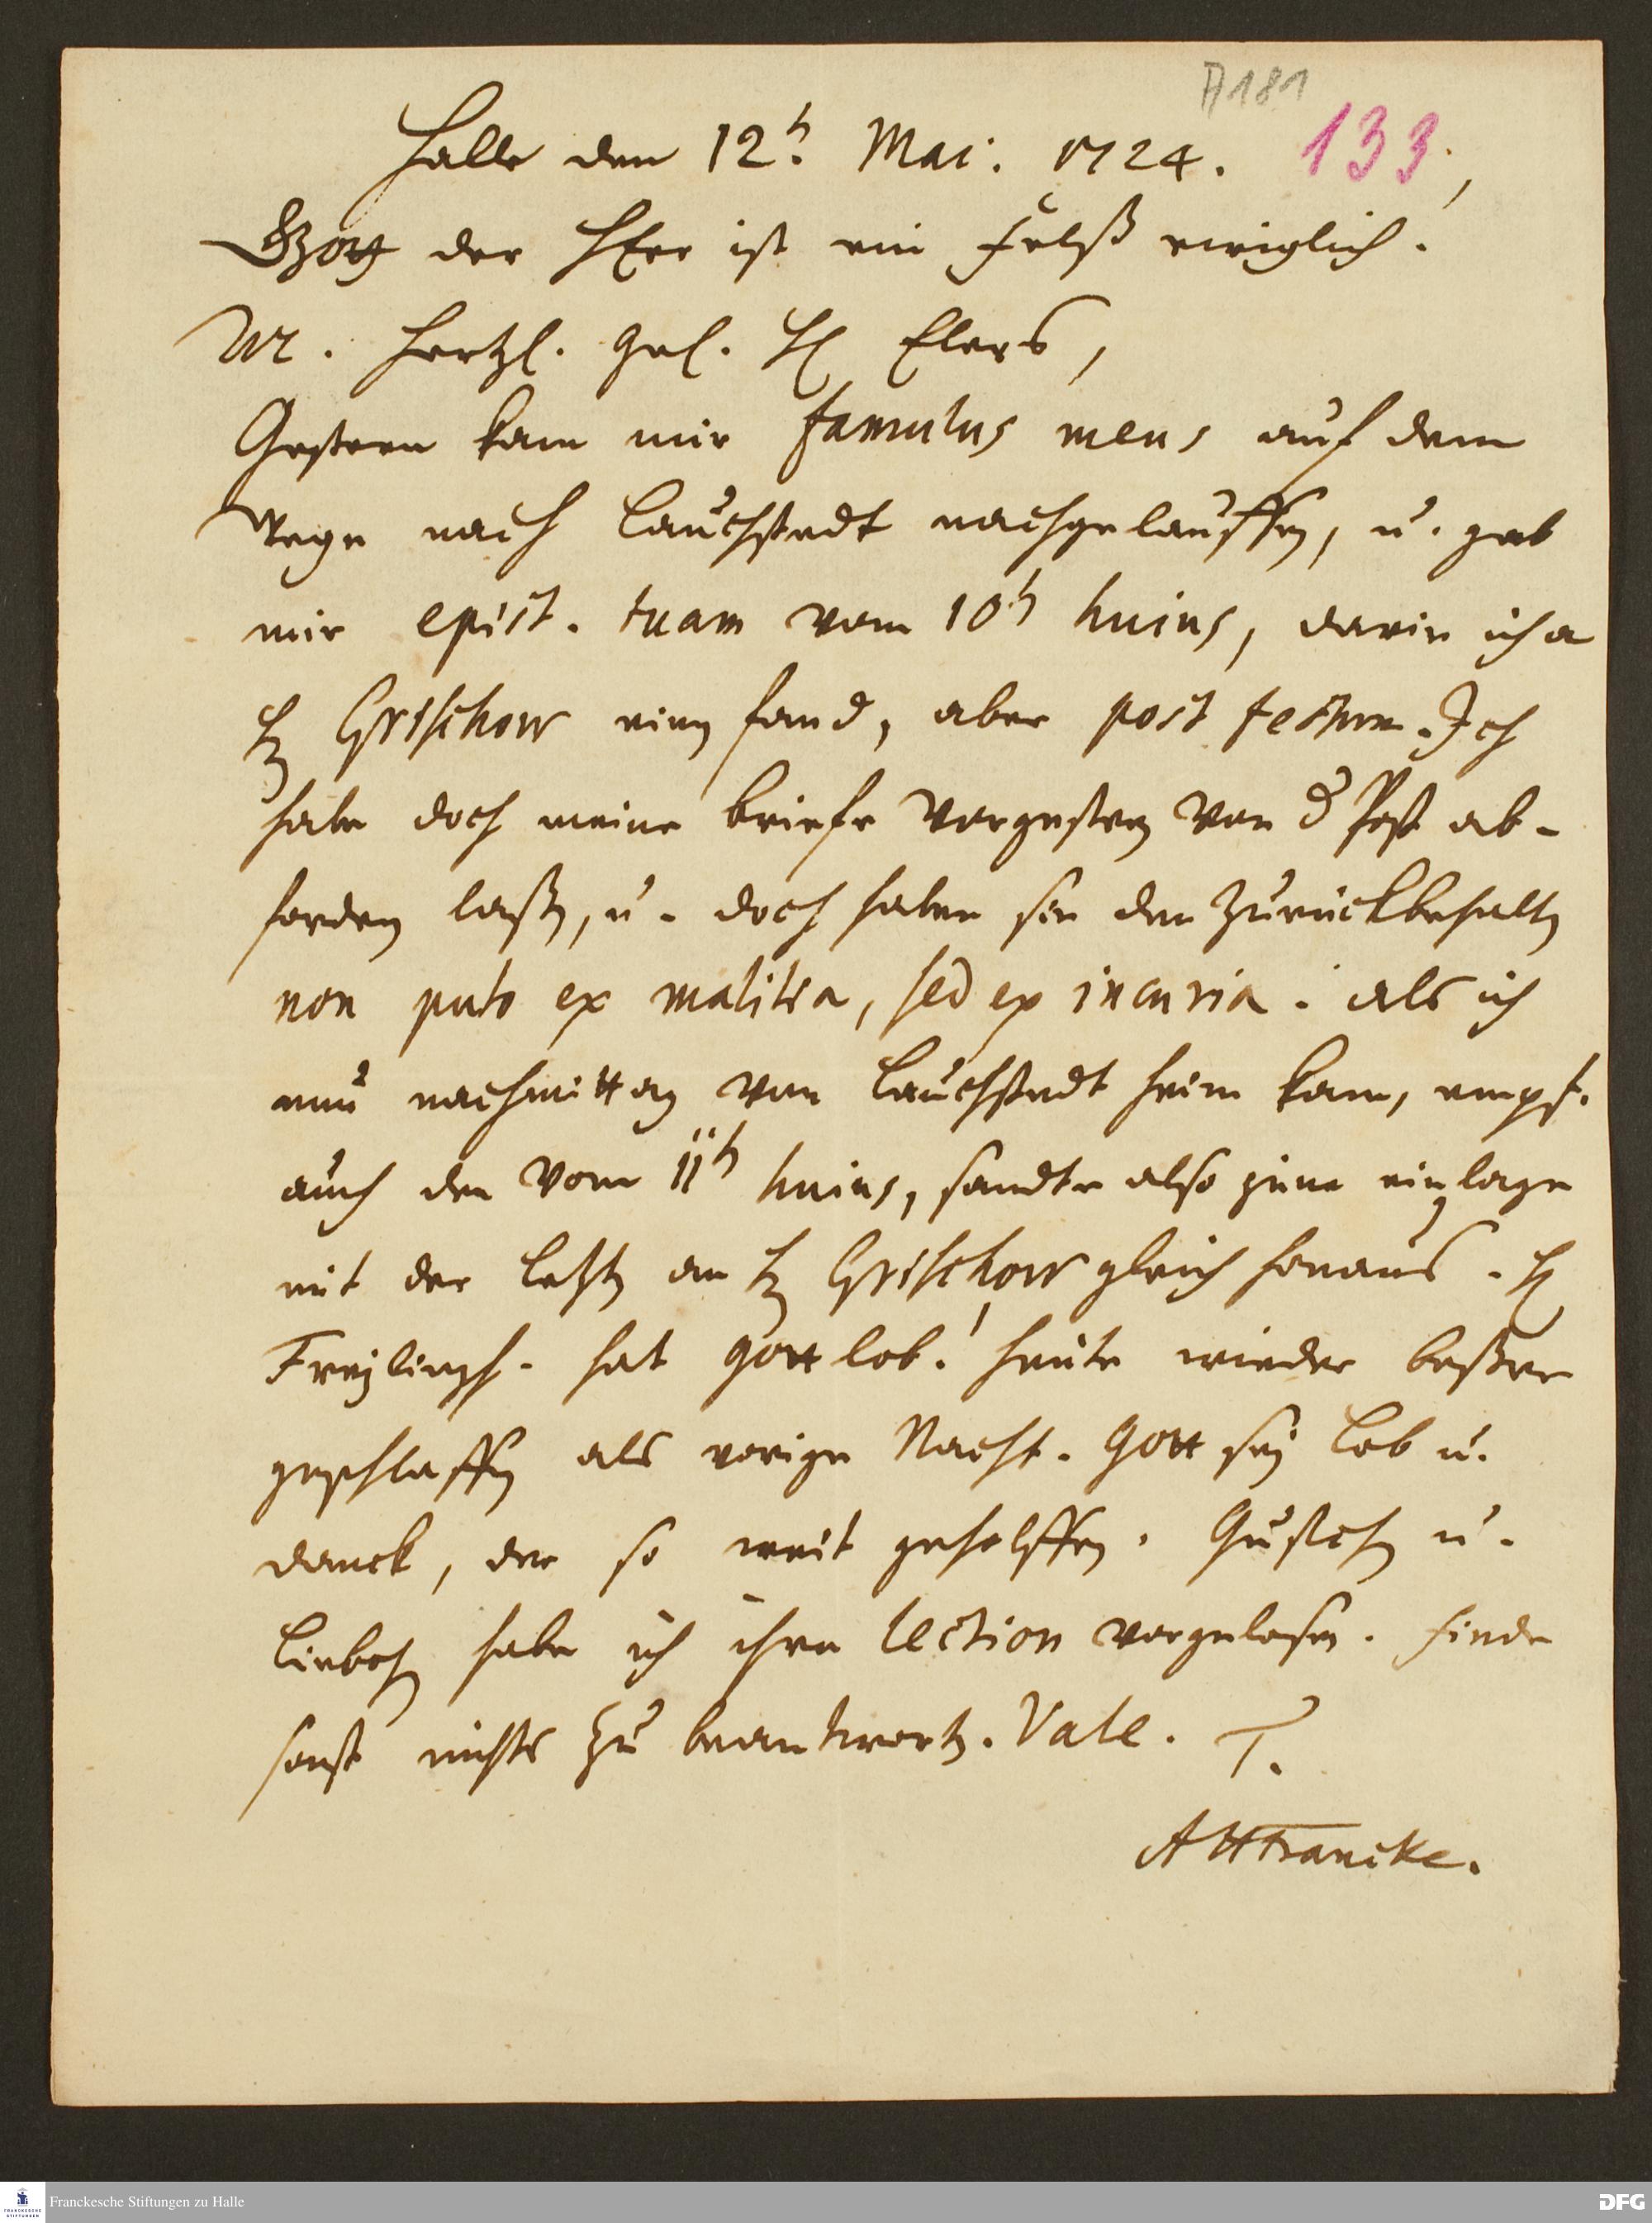 A181
133
Halle den 12t. Mai. 1724.
Gott der HErr ist ein Felß ewiglich.
M. Hertzl. Gel. H Elers,
Gestern kam mir famulus meus auf dem
Wege nach Lauchstedt nachgelauffen, u. gab
mir epist. tuam vom 10t huius, darin ich a
H Grischow einen fand, aber post festum. Ich
habe doch meine briefe vorgestern von d Post ab-
fordern laßen, u. doch haben sie den zurückbehalten
non puto ex malitia, sed ex incuria. als ich
nun nachmittag von Lauchstedt heim kam, empf.
auch den vom 11t huius, sandte also jene einlage
mit der letzten an H Grischow gleich hinaus. H
Freylingh. hat gott lob! heute wieder beßer
geschlaffen als vorige Nacht. Gott sey lob u.
danck, der so weit geholffen. Gustchen u.
Liebchen habe ich ihre lection vorgelesen. Finde
sonst nichts zu beantworten. Vale. T.
AHFrancke.
Franckesche Stiftungen zu Halle
FRANCKESCHE STIFTUNGEN
DFG